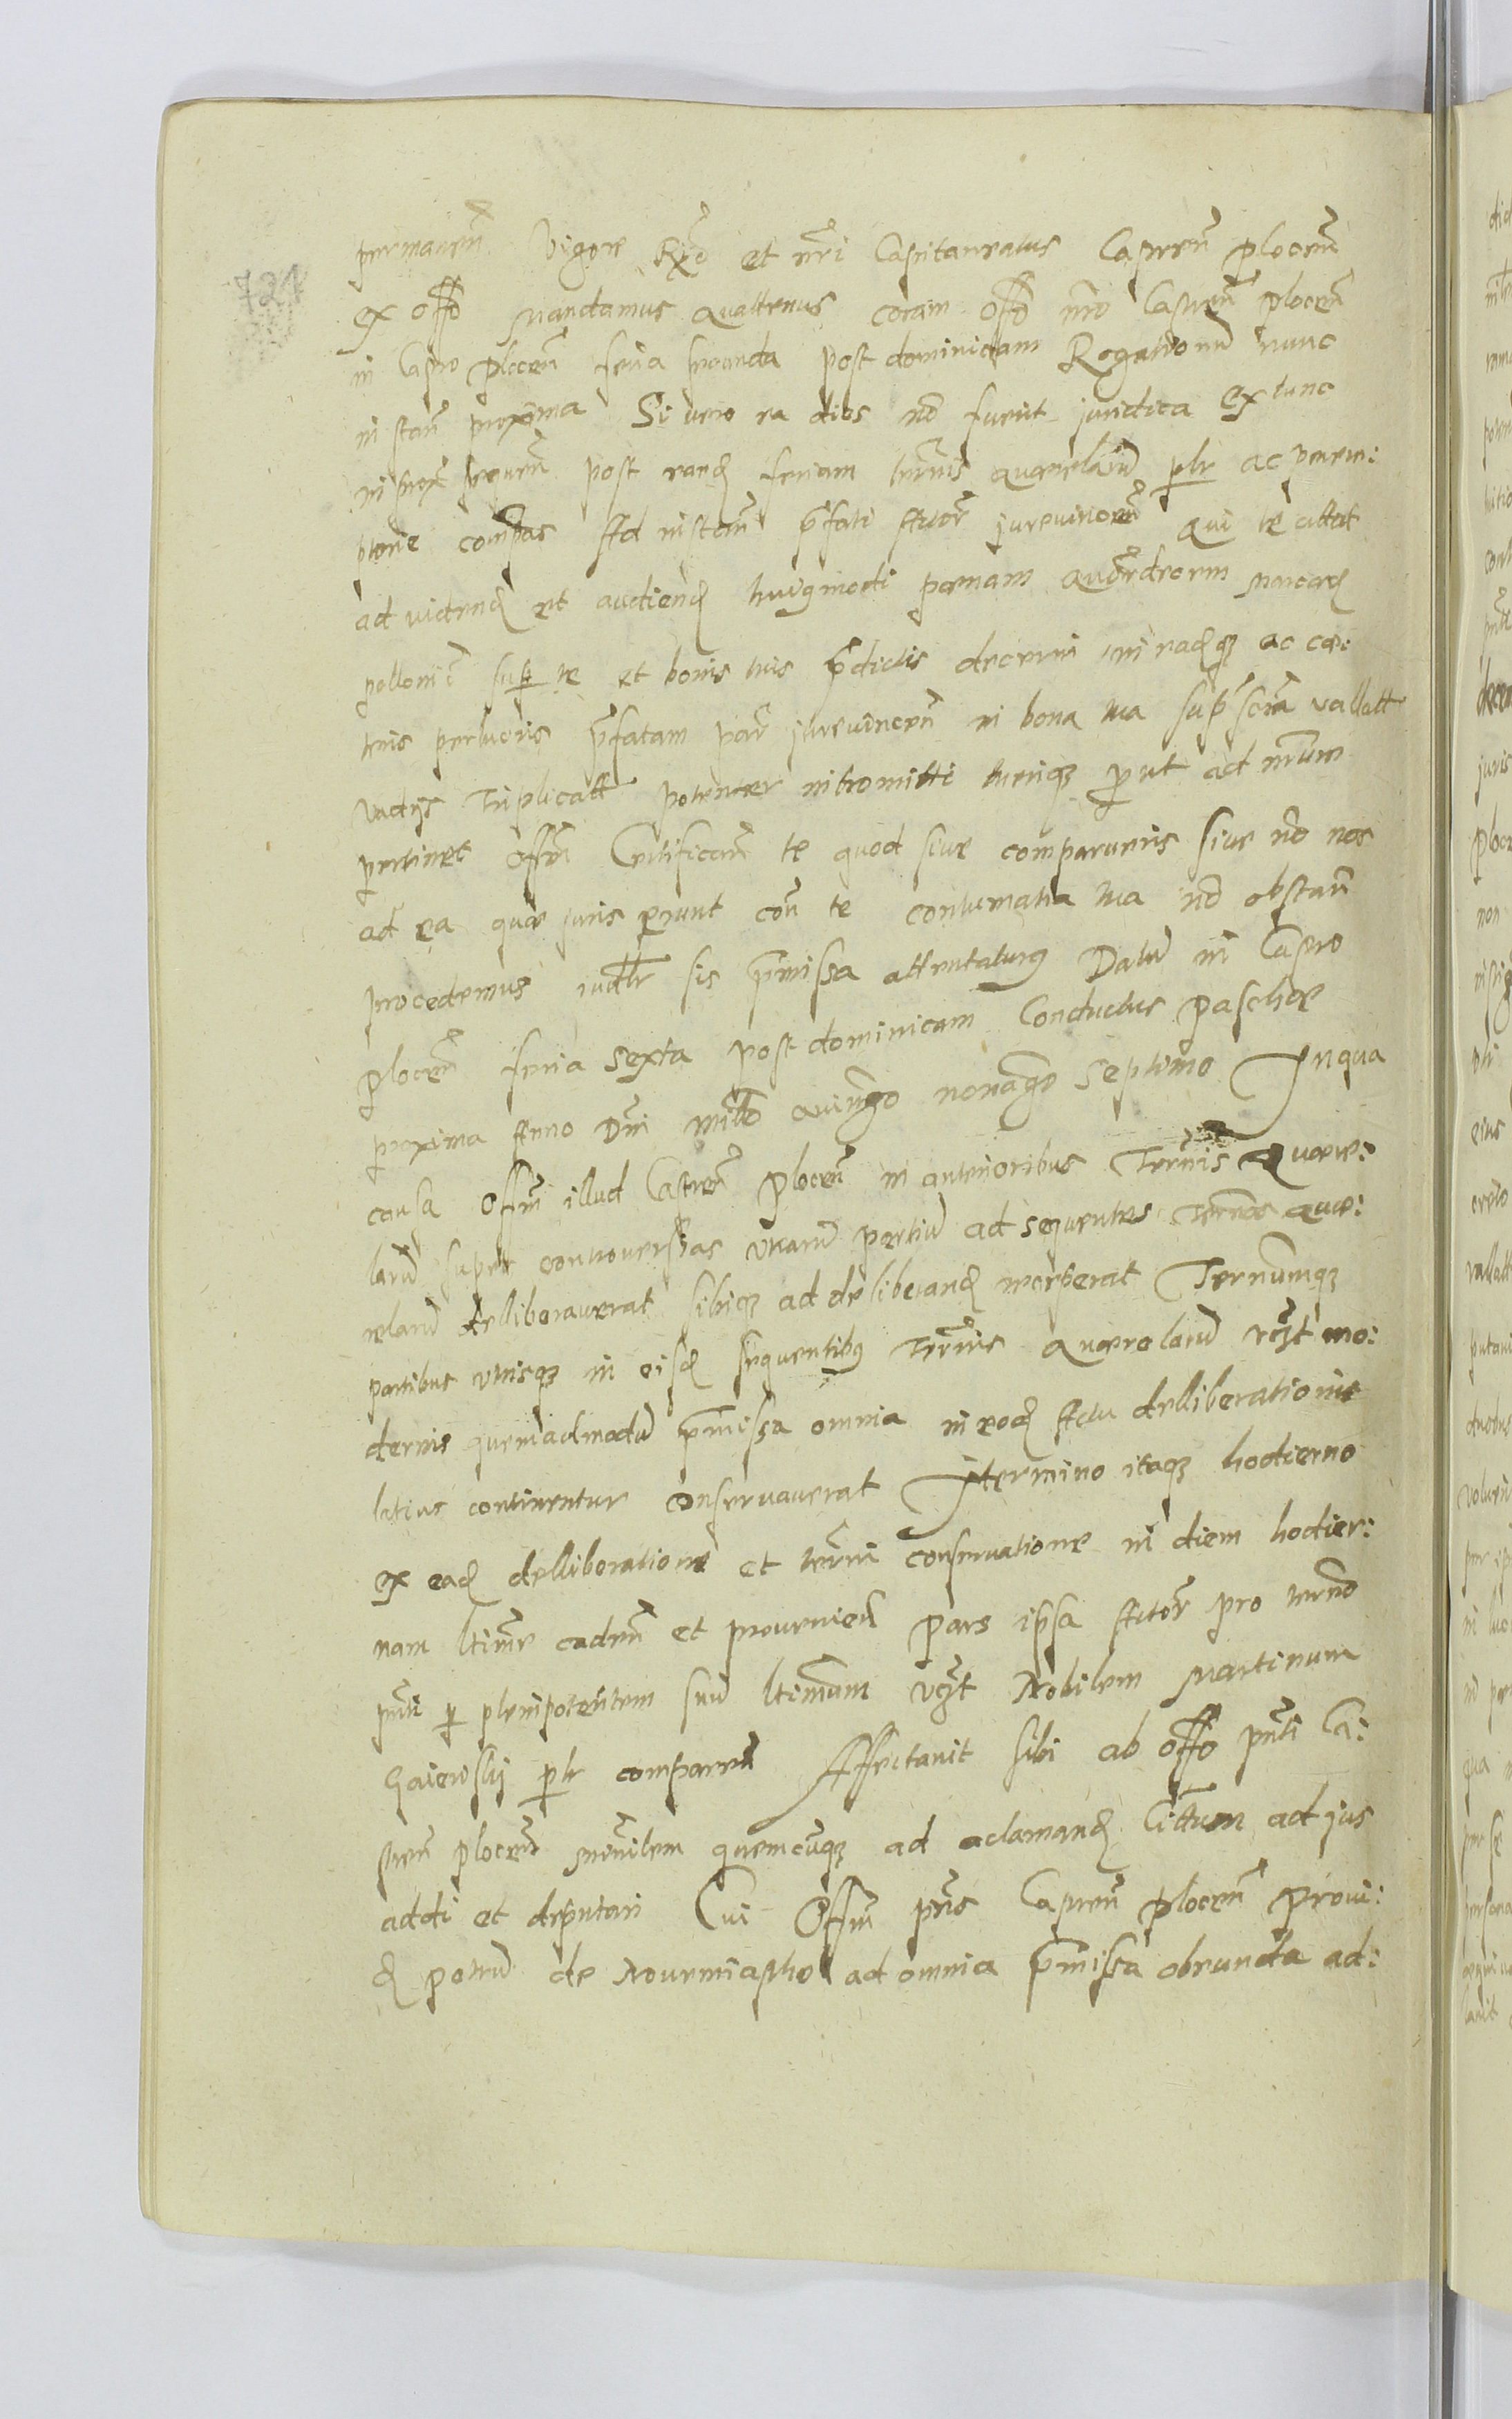 721
permanen Vigore R et nri Capitaneatus Castren plocen
ex offo mandamus quattenus coram offo nro Castren plocen
in Castro plocen feria secunda post dominicam Rogationu nunc
instan proxima Si vero ea dies no fuerit juridica Ex tunc
in prox sequen post eand feriam termis quaerelaru plr ac perem:
ptorie compas Ad instan pfati Actor jurevincen qui te cittat
ad videnḍ et audienḍ huiqmodi paenam quatuordecim marcarḍ
pollonic sup te et bonis tuis pdictis decerni in eadqz ac cae:
teris perlucris pfatam par jurevincen in bona tua supscra vallatt
vadijs Triplicatt potenter intromitti tueriqz prout ad nrum
pertinet offm Certifican te quod sive comparueris sive no nos
ad ea quae juris erunt con te contumatia tua no obstan
procedemus iudlr sis pmissa attentaturq Datu in Castro
plocen feria sexta post dominicam Conductus Paschae
proxima Anno Dni millo quingo nonago septimo In qua
causa Offm illud Castren plocen in anterioribus Termis Quaere:
laru super controversias utraru partiu ad sequentes termos quae:
relaru delliberaverat sibiqz ad deliberanḍ receperat Terminumqz
partibus utrisqz in eisḍ sequentibq termis quaerelaru vzt mo:
dernis quemadmodu pmissa omnia in eoḍ Actu delliberationis
latius continentur conservaverat In termino itaqz hodierno
ex eaḍ delliberatione et termi conservatione in diem hodier:
nam ltime caden et provenien Pars ipsa Actor pro termo
pnti p plenipotentem suu ltimum vzt Nobilem Martinum
Gaiewskj plr comparen Affectavit sibi ab offo pnti Ca:
stren plocen mnrilem quemcunqz ad aclamanḍ Cittum ad jus
addi et deputari Cui Offm pns Castren plocen Provi:
ḍ petru de ad omnia pmissa obeunda ad: